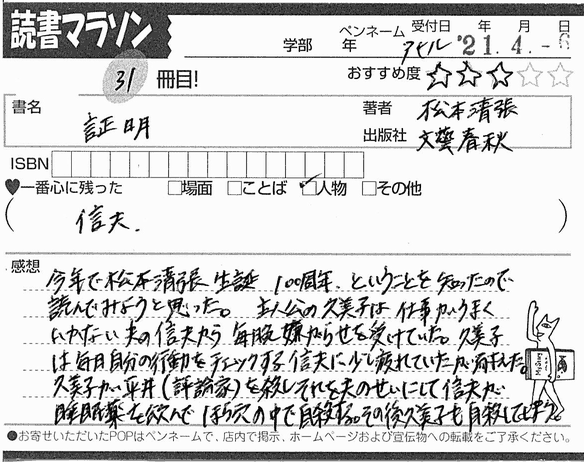 読書マラソン
学部 年 ペンネーム アベル 受付日 年 月 日 '21.4.-6
31 冊目! おすすめ度
書名 証明
著者 松本清張
出版社 文藝春秋
ISBN
♥一番心に残った □場面 □ことば □人物 □その他
( 信夫. )
感想
今年で松本清張 生誕 100周年、ということを知ったので
読んでみようと思った。 主人公の久美子は仕事がうまく
いかない夫の信夫から毎晩嫌がらせを受けていた。久美子
は毎日自分の行動をチェックする信夫に少し疲れていたが耐えた。
久美子が平井(評論家)を殺しそれを夫のせいにして信夫が
睡眠薬を飲んでほら穴の中で自殺する。その後久美子も自殺してしまう。
●お寄せいただいたPOPはペンネームで、店内で掲示、ホームページおよび宣伝物への転載をご了承ください。